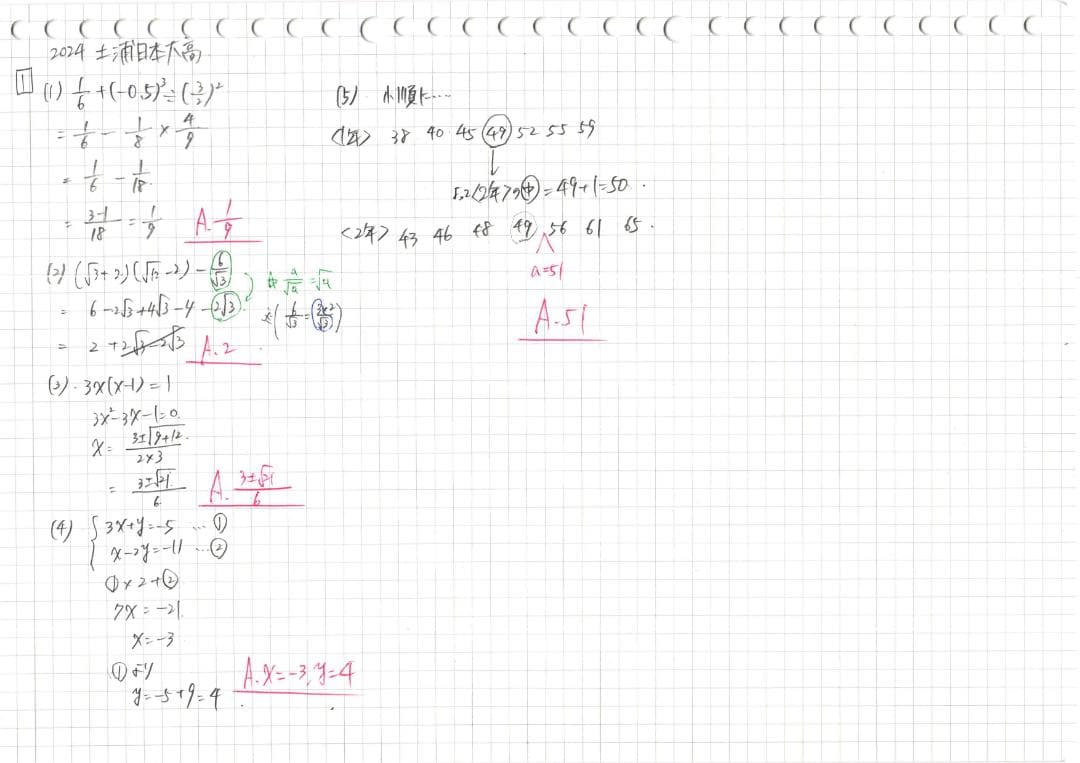 2024 土浦日本大高
1 (1) 1/6 + (-0.5)³ ÷ (3/2)²
= 1/6 - 1/8 × 4/9
= 1/6 - 1/18
= 3-1/18 = 1/9 A. 1/9
(2) (√3+2)(√12-2) - 6/√3 a/√a = √a
= 6-2√3+4√3-4-2√3 (6/√3 = 3×2/√3)
= 2+2√3-2√3 A. 2
(3) 3x(x-1)=1
3x²-3x-1=0
x= 3±√9+12/2×3
= 3±√21/6 A. 3±√21/6
(4) { 3x+y=-5 … ①
x-2y=-11 … ②
①×2+②
7x=-21
x=-3
①より A. x=-3, y=4
y=-5+9=4
(5) 小順に……
<1年> 38 40 45 49 52 55 59
<2年>の中=49+1=50.
<2年> 43 46 48 49 56 61 65.
a=51
A. 51